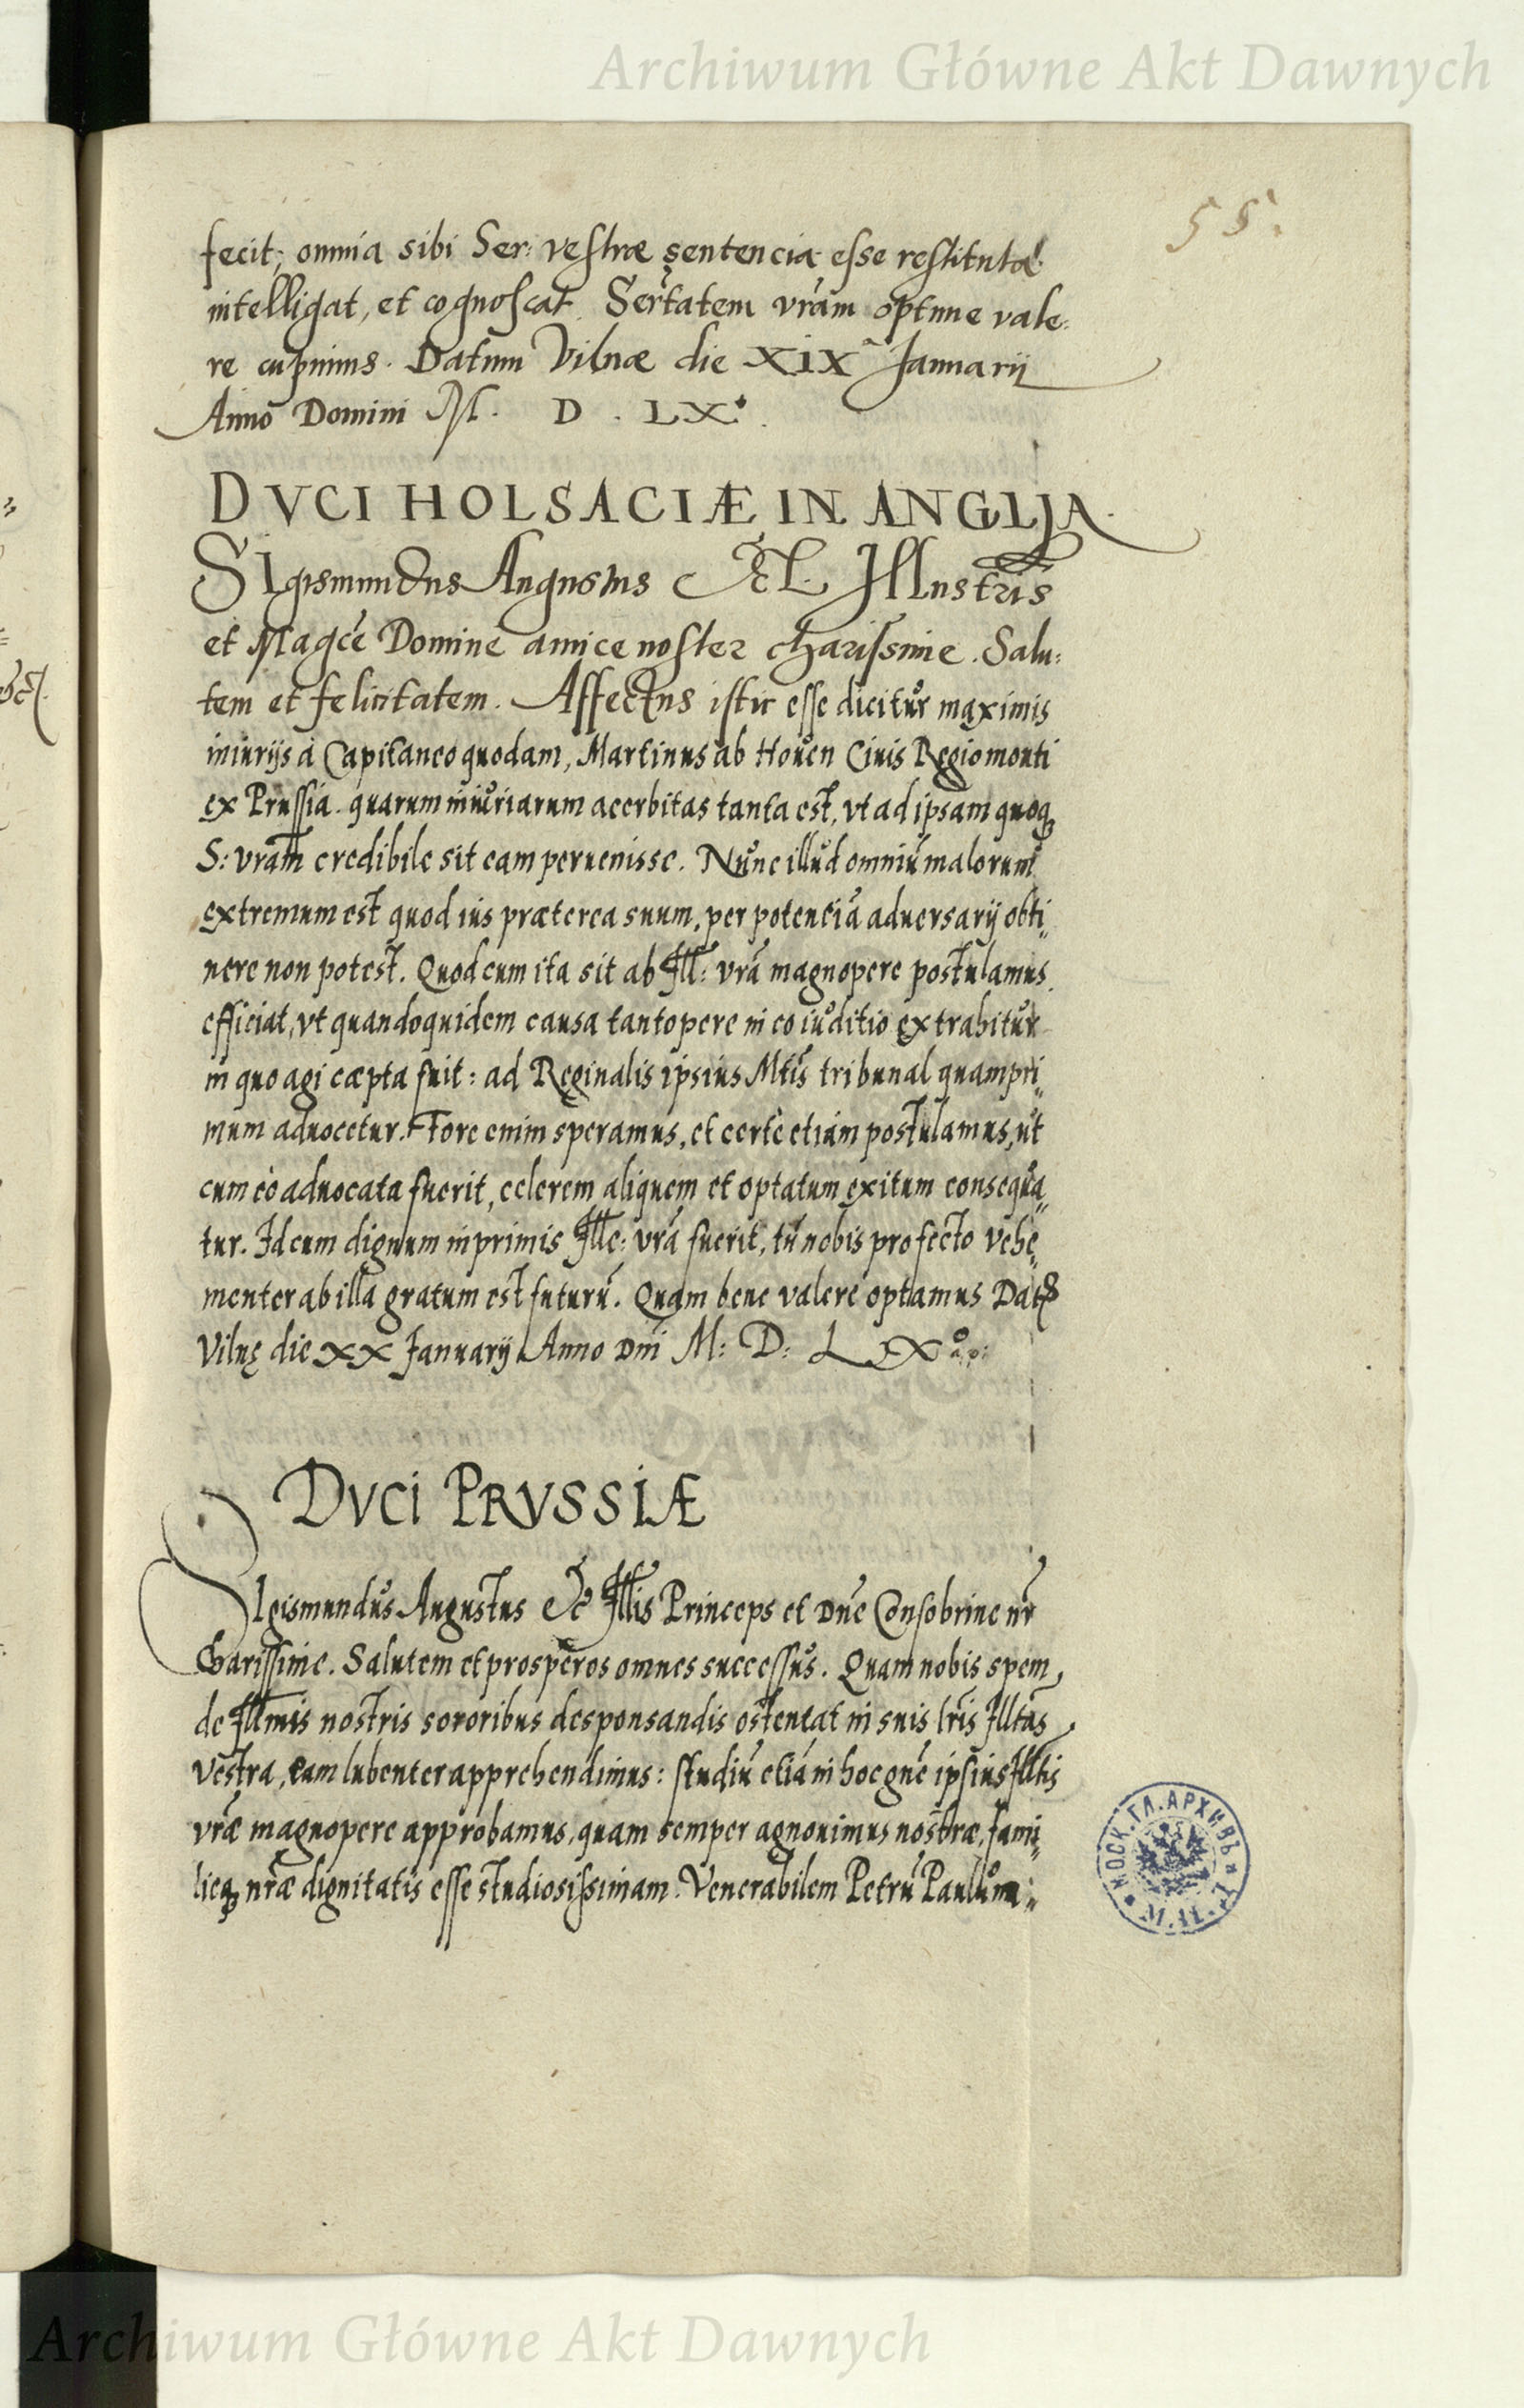 Archiwum Główne Akt Dawnych
55.
fecit; omnia sibi Ser: vestræ sentencia esse restituta
intelligat, et cognoscat. Sertatem vram optime vale:
re cupimus. Datum Vilnæ die XIX Januarii
Anno Domini M. D. LX.
DVCI HOLSACIÆ IN ANGLIA.
SIgismundus Augustus Etc. Illustris
et Magce Domine amice noster charissime. Salu:
tem et felicitatem. Affectus istic esse dicitur maximis
iniurijs à Capitaneo quodam, Martinus ab Houen Ciuis Regiomonti
ex Prussia. quarum iniuriarum acerbitas tanta est, vt ad ipsam quoq
S: vram credibile sit eam peruenisse. Nunc illud omniũ malorum
extremum est quod ius præterea suum, per potenciã aduersarij obti„
nere non potest. Quod cum ita sit ab Ill: vrã magnopere postulamus
efficiat, vt quandoquidem causa tantopere in eo iuditio extrahitur
in quo agi cæpta fuit: ad Reginalis ipsius Mtis tribunal quampri„
mum aduocetur. Fore enim speramus, et certè etiam postulamus, ut
cum eò aduocata fuerit, celerem aliquem et optatum exitum consequa„
tur. Id cum dignum inprimis Ille: vrã fuerit, tũ nobis profecto vehe„
menter ab illa gratum est futurũ. Quam bene valere optamus Dat
Vilnę die XX Januarij Anno Dni M: D: LX°
DVCI PRVSSIÆ
SIgismundus Augustus Etc Illis Princeps et Dne Consobrine nr
Charissime. Salutem et prosperos omnes successus. Quam nobis spem
de Illmis nostris sororibus desponsandis ostentat in suis lris Illtas
vestra, eam lubenter apprehendimus: studiũ etiã in hoc gne ipsius Illtis
vræ magnopere approbamus, quam semper agnouimus nostræ, fami„
lieq nræ dignitatis esse studiosissimam. Venerabilem Petrũ Paullum„
МОСК. ГЛ. АРХИВЪ
Archiwum Główne Akt Dawnych